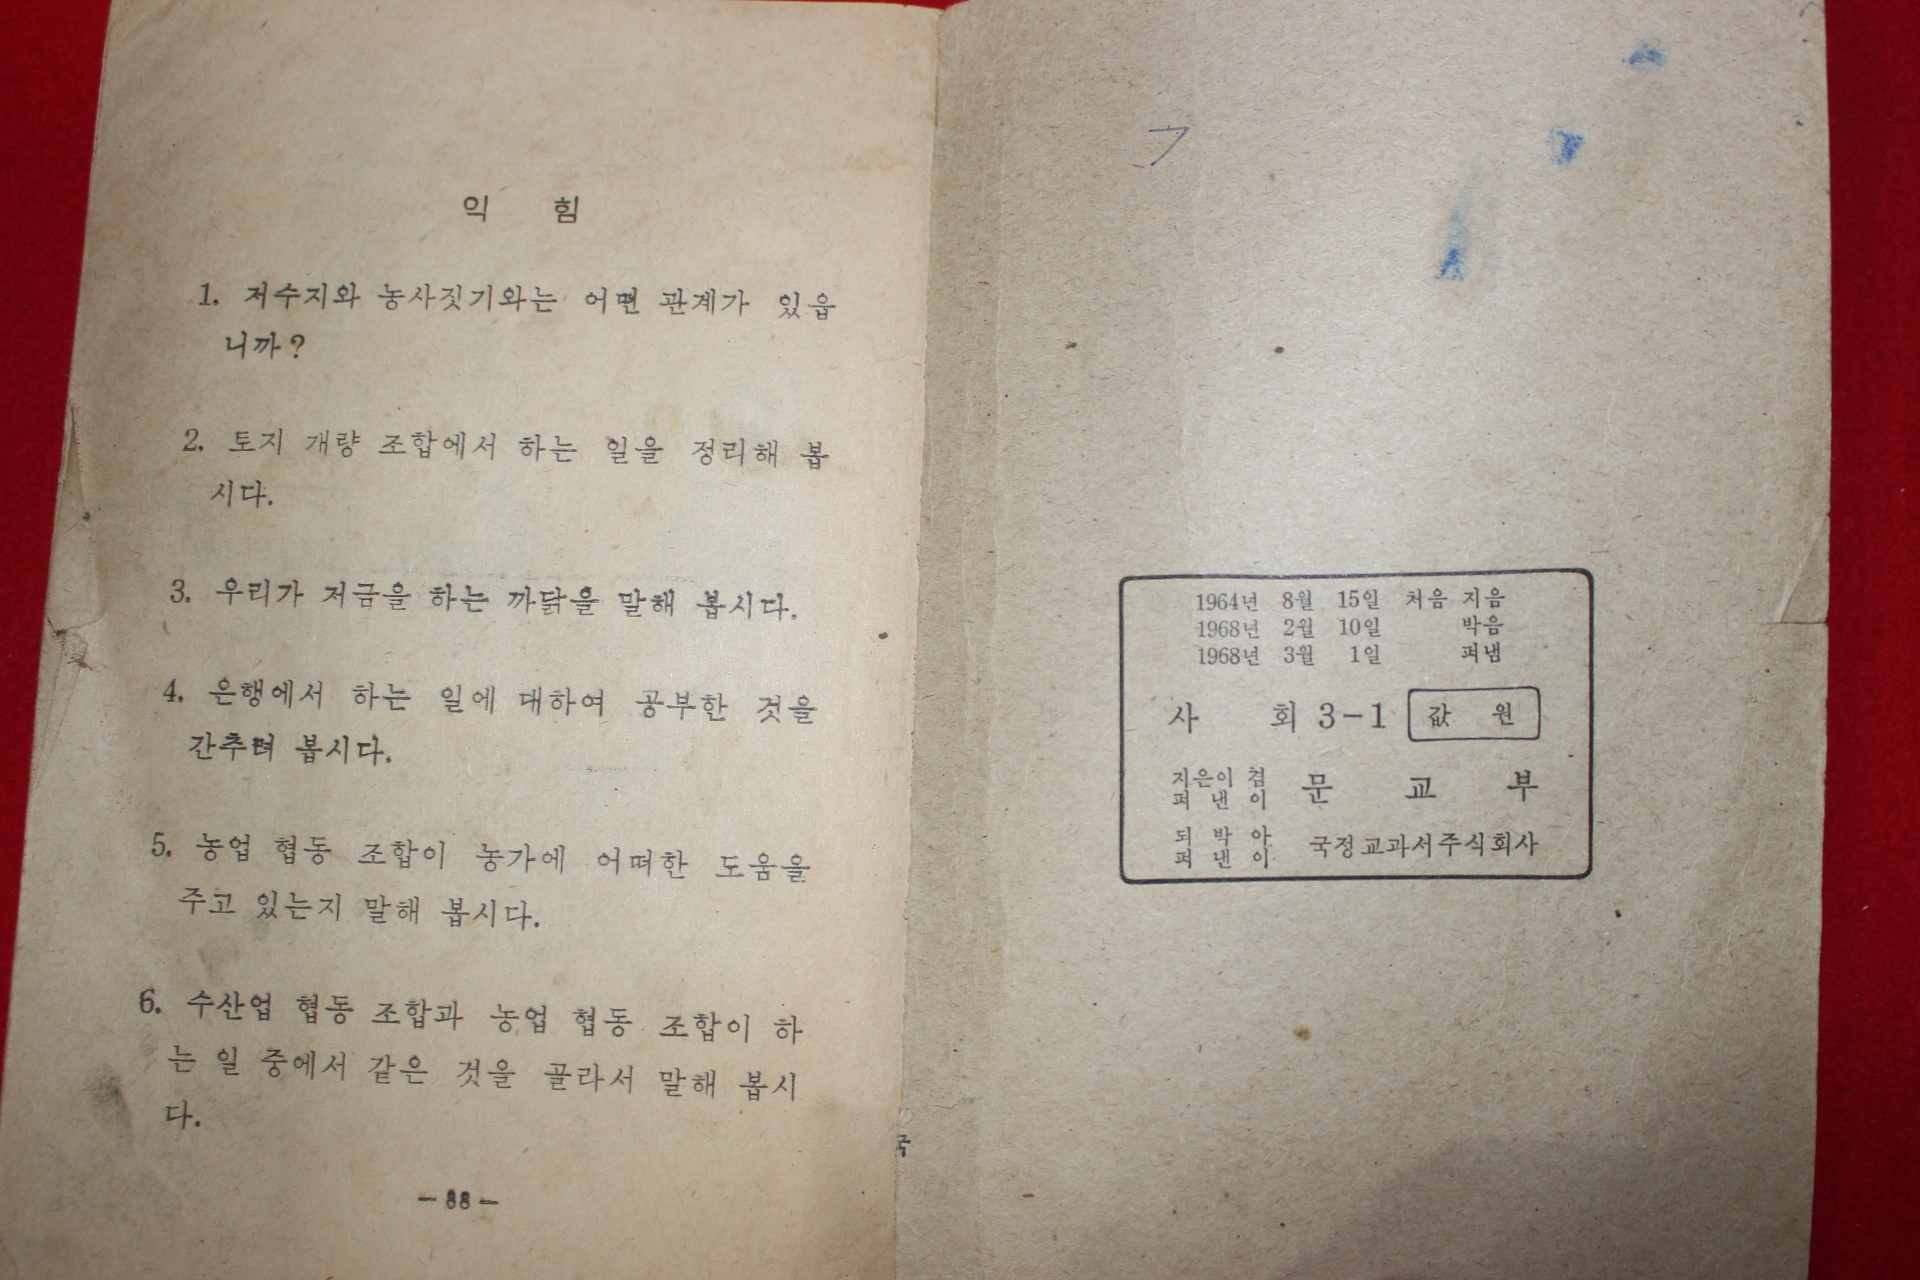 익 힘
1. 저수지와 농사짓기와는 어떤 관계가 있읍
니까?
2. 토지 개량 조합에서 하는 일을 정리해 봅
시다.
3. 우리가 저금을 하는 까닭을 말해 봅시다.
4. 은행에서 하는 일에 대하여 공부한 것을
간추려 봅시다.
5. 농업 협동 조합이 농가에 어떠한 도움을
주고 있는지 말해 봅시다.
6. 수산업 협동 조합과 농업 협동 조합이 하
는 일 중에서 같은 것을 골라서 말해 봅시
다.
- 88 -
국
1964년 8월 15일 처음 지음
1968년 2월 10일 박음
1968년 3월 1일 펴냄
사 회 3-1 값 원
지은이 겸
펴 낸 이 문 교 부
되 박 아
펴 낸 이 국정교과서주식회사